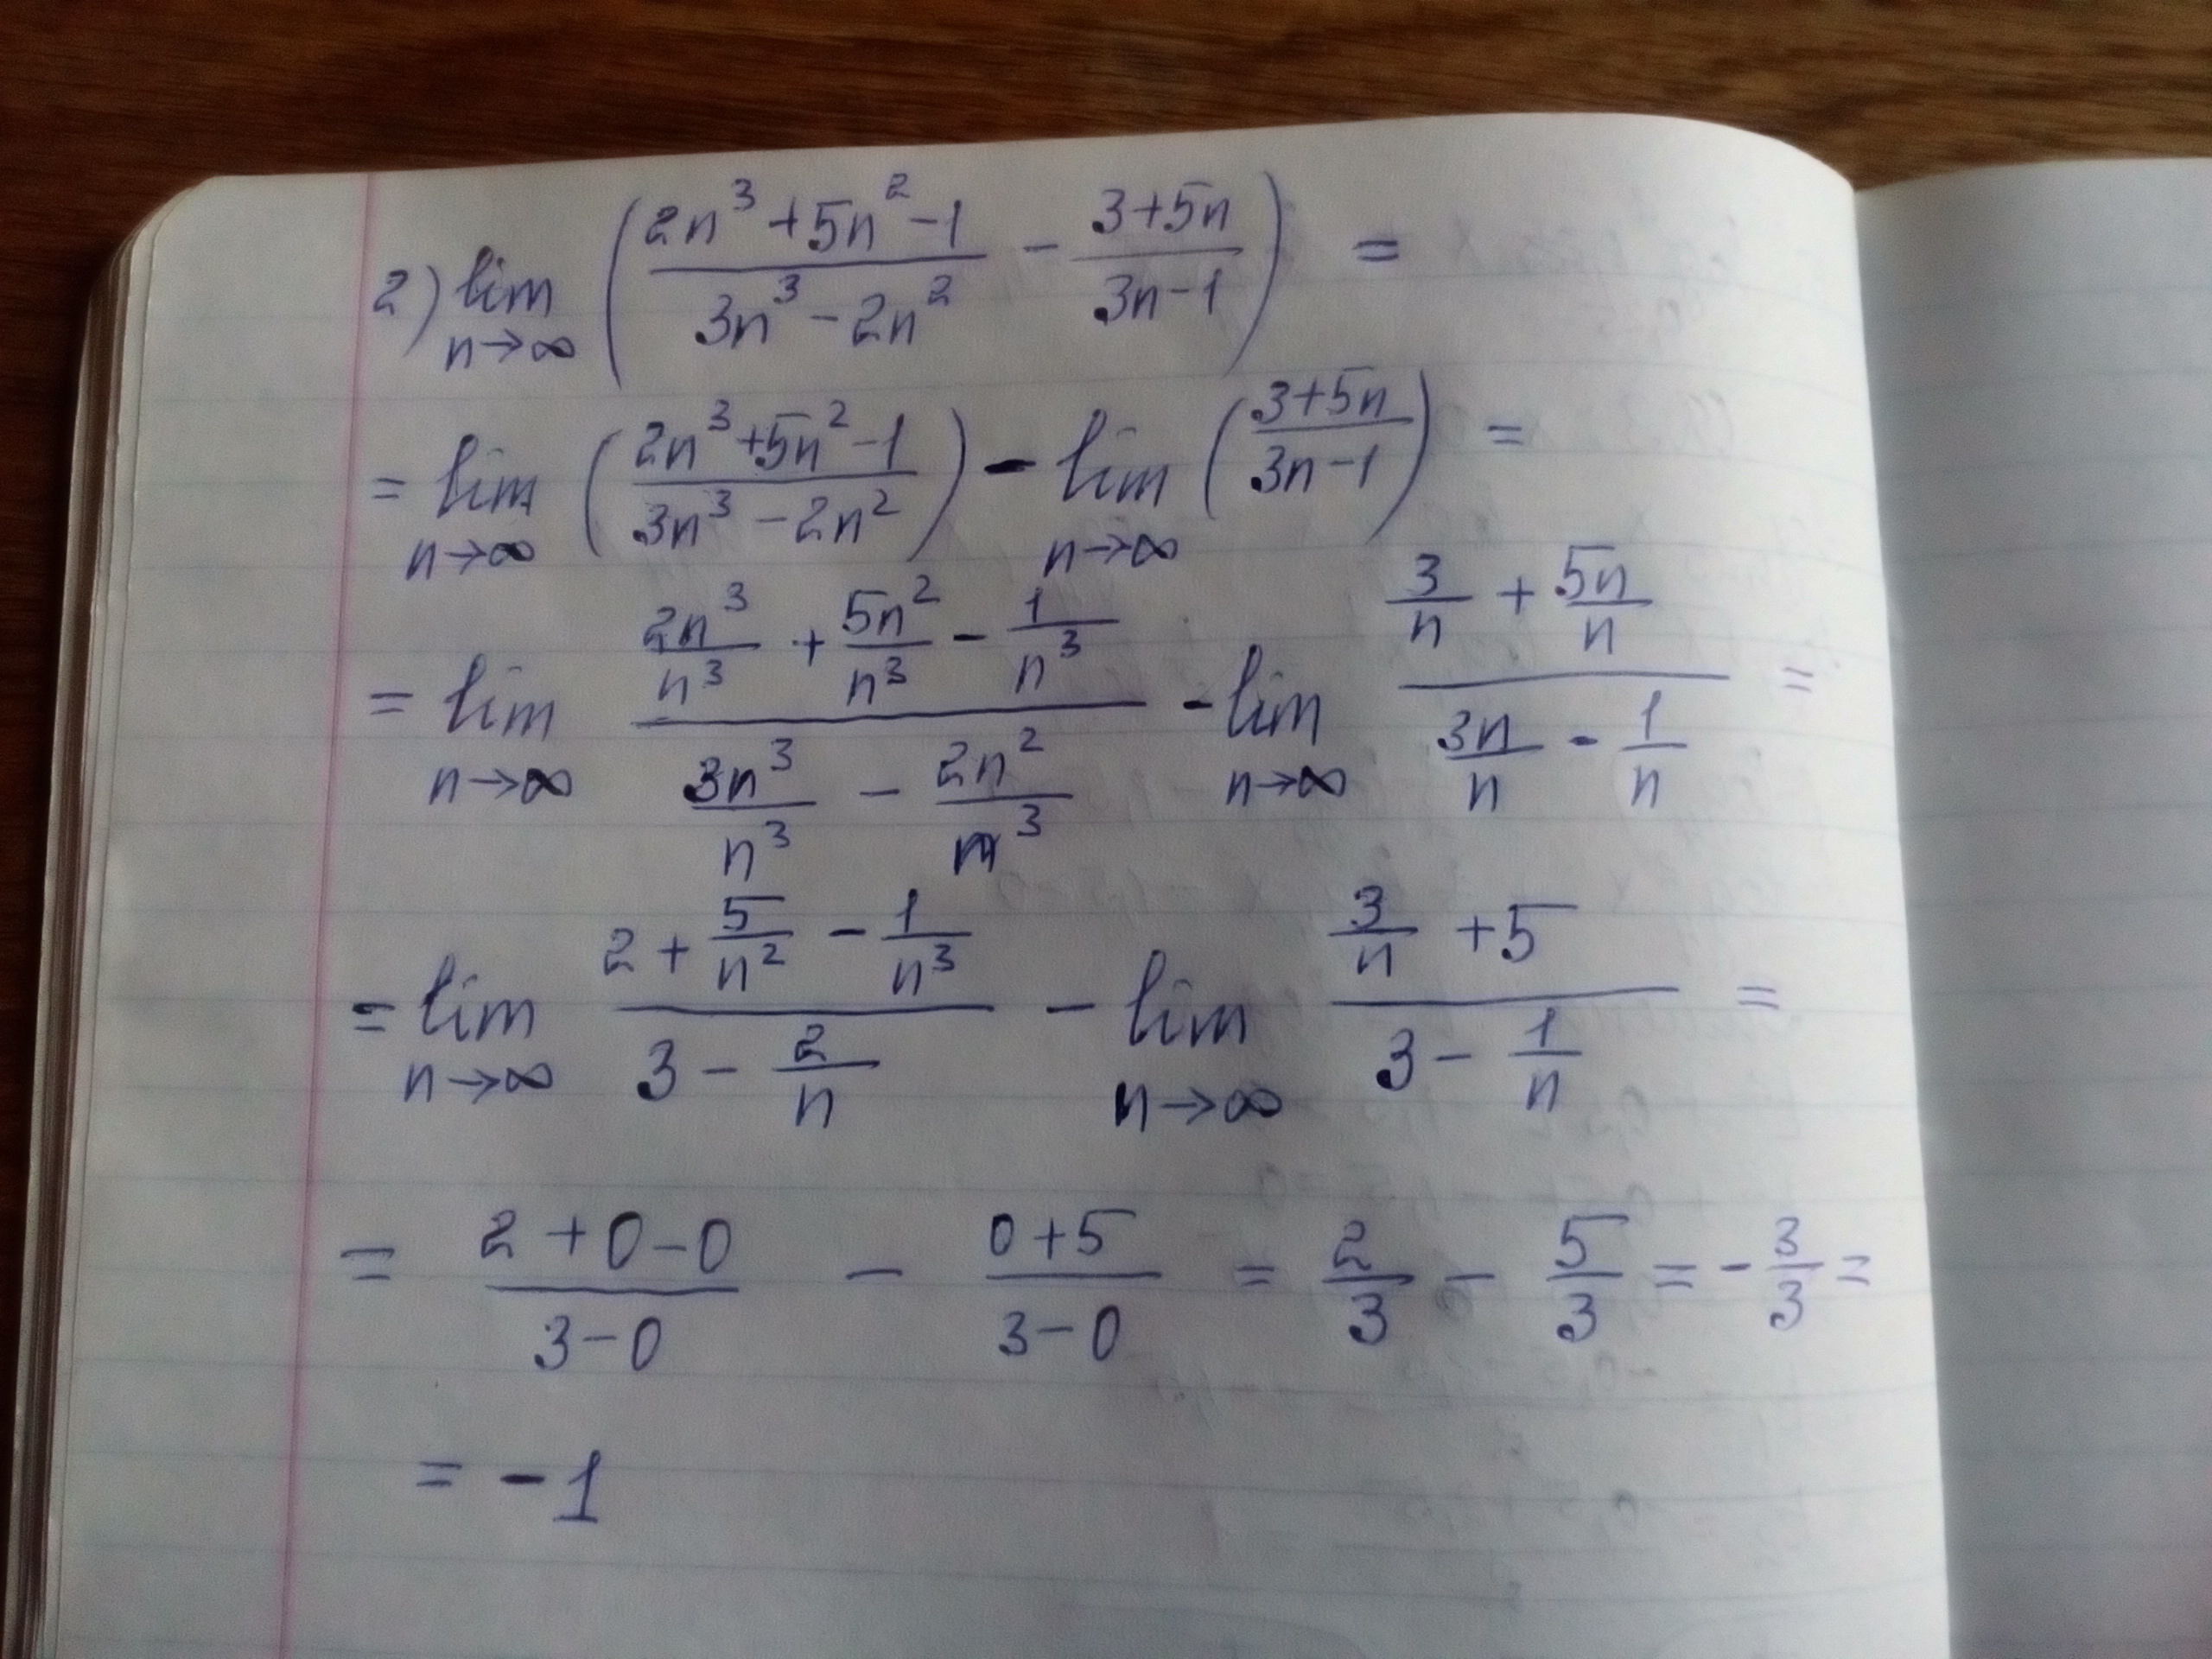 2) lim n→∞ ( (2n³+5n²-1)/(3n³-2n²) - (3+5n)/(3n-1) ) =
= lim n→∞ ( (2n³+5n²-1)/(3n³-2n²) ) - lim n→∞ ( (3+5n)/(3n-1) ) =
= lim n→∞ (2n³/n³ + 5n²/n³ - 1/n³)/(3n³/n³ - 2n²/n³) - lim n→∞ (3/n + 5n/n)/(3n/n - 1/n) =
= lim n→∞ (2 + 5/n² - 1/n³)/(3 - 2/n) - lim n→∞ (3/n + 5)/(3 - 1/n) =
= (2+0-0)/(3-0) - (0+5)/(3-0) = 2/3 - 5/3 = -3/3 =
= -1